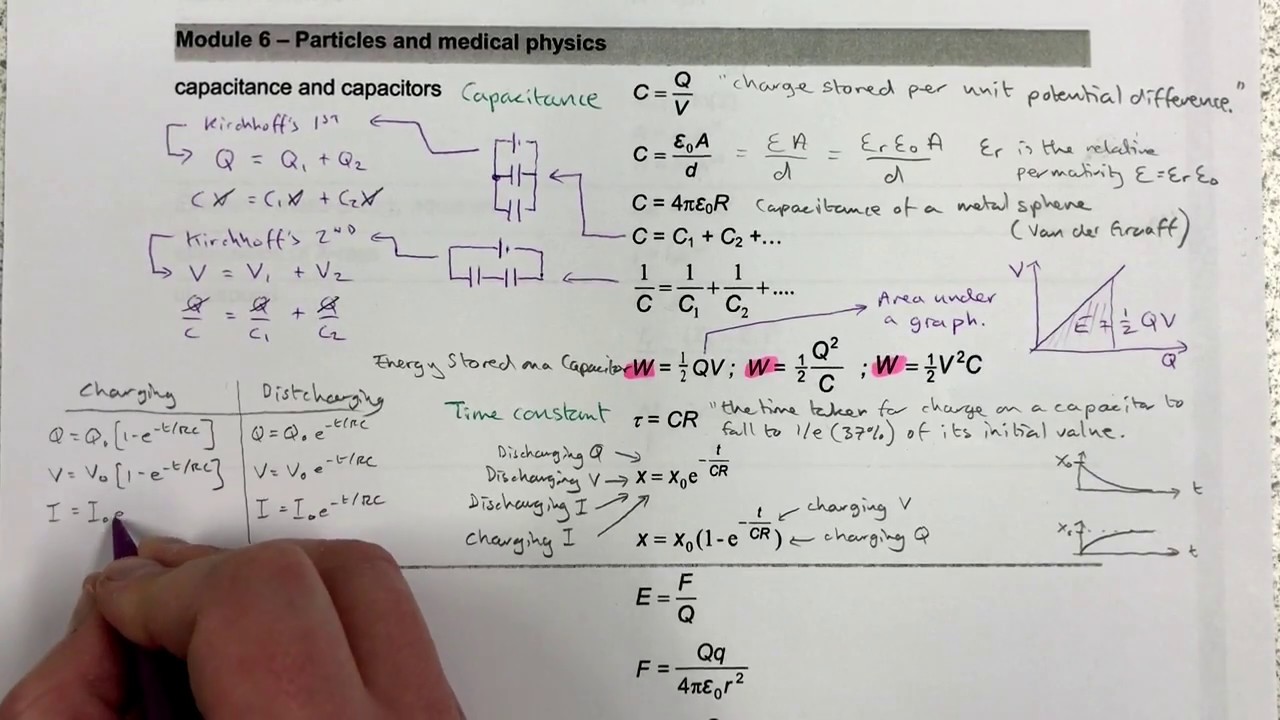 Module 6 – Particles and medical physics
capacitance and capacitors Capacitance C = Q/V "charge stored per unit potential difference."
Kirchhoff's 1st
Q = Q₁ + Q₂
CV = C₁V + C₂V
C = ε₀A/d = εA/d = εrε₀A/d εr is the relative
permativity ε = εrε₀
C = 4πε₀R Capacitance of a metal sphere
(Van der Graaff)
C = C₁ + C₂ +...
Kirchhoff's 2nd
V = V₁ + V₂
Q/C = Q/C₁ + Q/C₂
1/C = 1/C₁ + 1/C₂ +....
Area under
a graph.
V
E = ½ QV
Q
Energy Stored on a Capacitor W = ½QV ; W = ½ Q²/C ; W = ½V²C
Charging Distcharging
Q = Q₀[1-e^-t/RC] Q = Q₀e^-t/RC
V = V₀[1-e^-t/RC] V = V₀e^-t/RC
I = I₀e I = I₀e^-t/RC
Time constant τ = CR "the time taken for charge on a capacitor to
fall to 1/e (37%) of its initial value.
Discharging Q
Discharging V x = x₀e^-t/CR
Discharging I
Charging I x = x₀(1-e^-t/CR) charging V
charging Q
X₀
t
X₀
t
E = F/Q
F = Qq/4πε₀r²